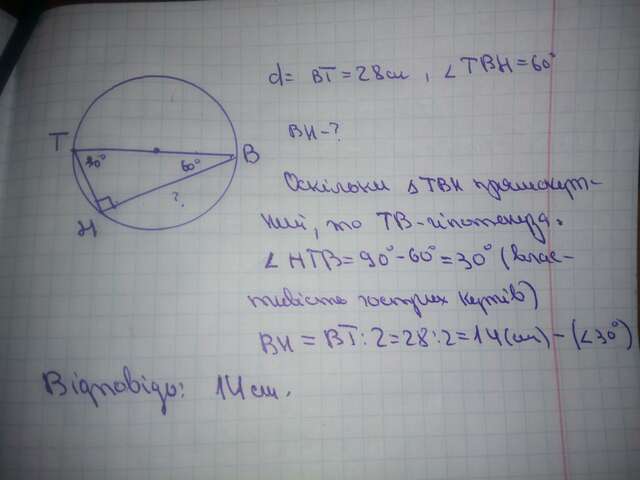 d= BT=28см, ∠TBH=60°
T
30°
60°
B
BH-?
?
H
Оскільки △TBH прямокут-
ний, то TB-гіпотенуза.
∠HTB=90°-60°=30° (влас-
тивість гострих кутів)
BH = BT:2=28:2=14(см)-(∠30°)
Відповідь: 14см.